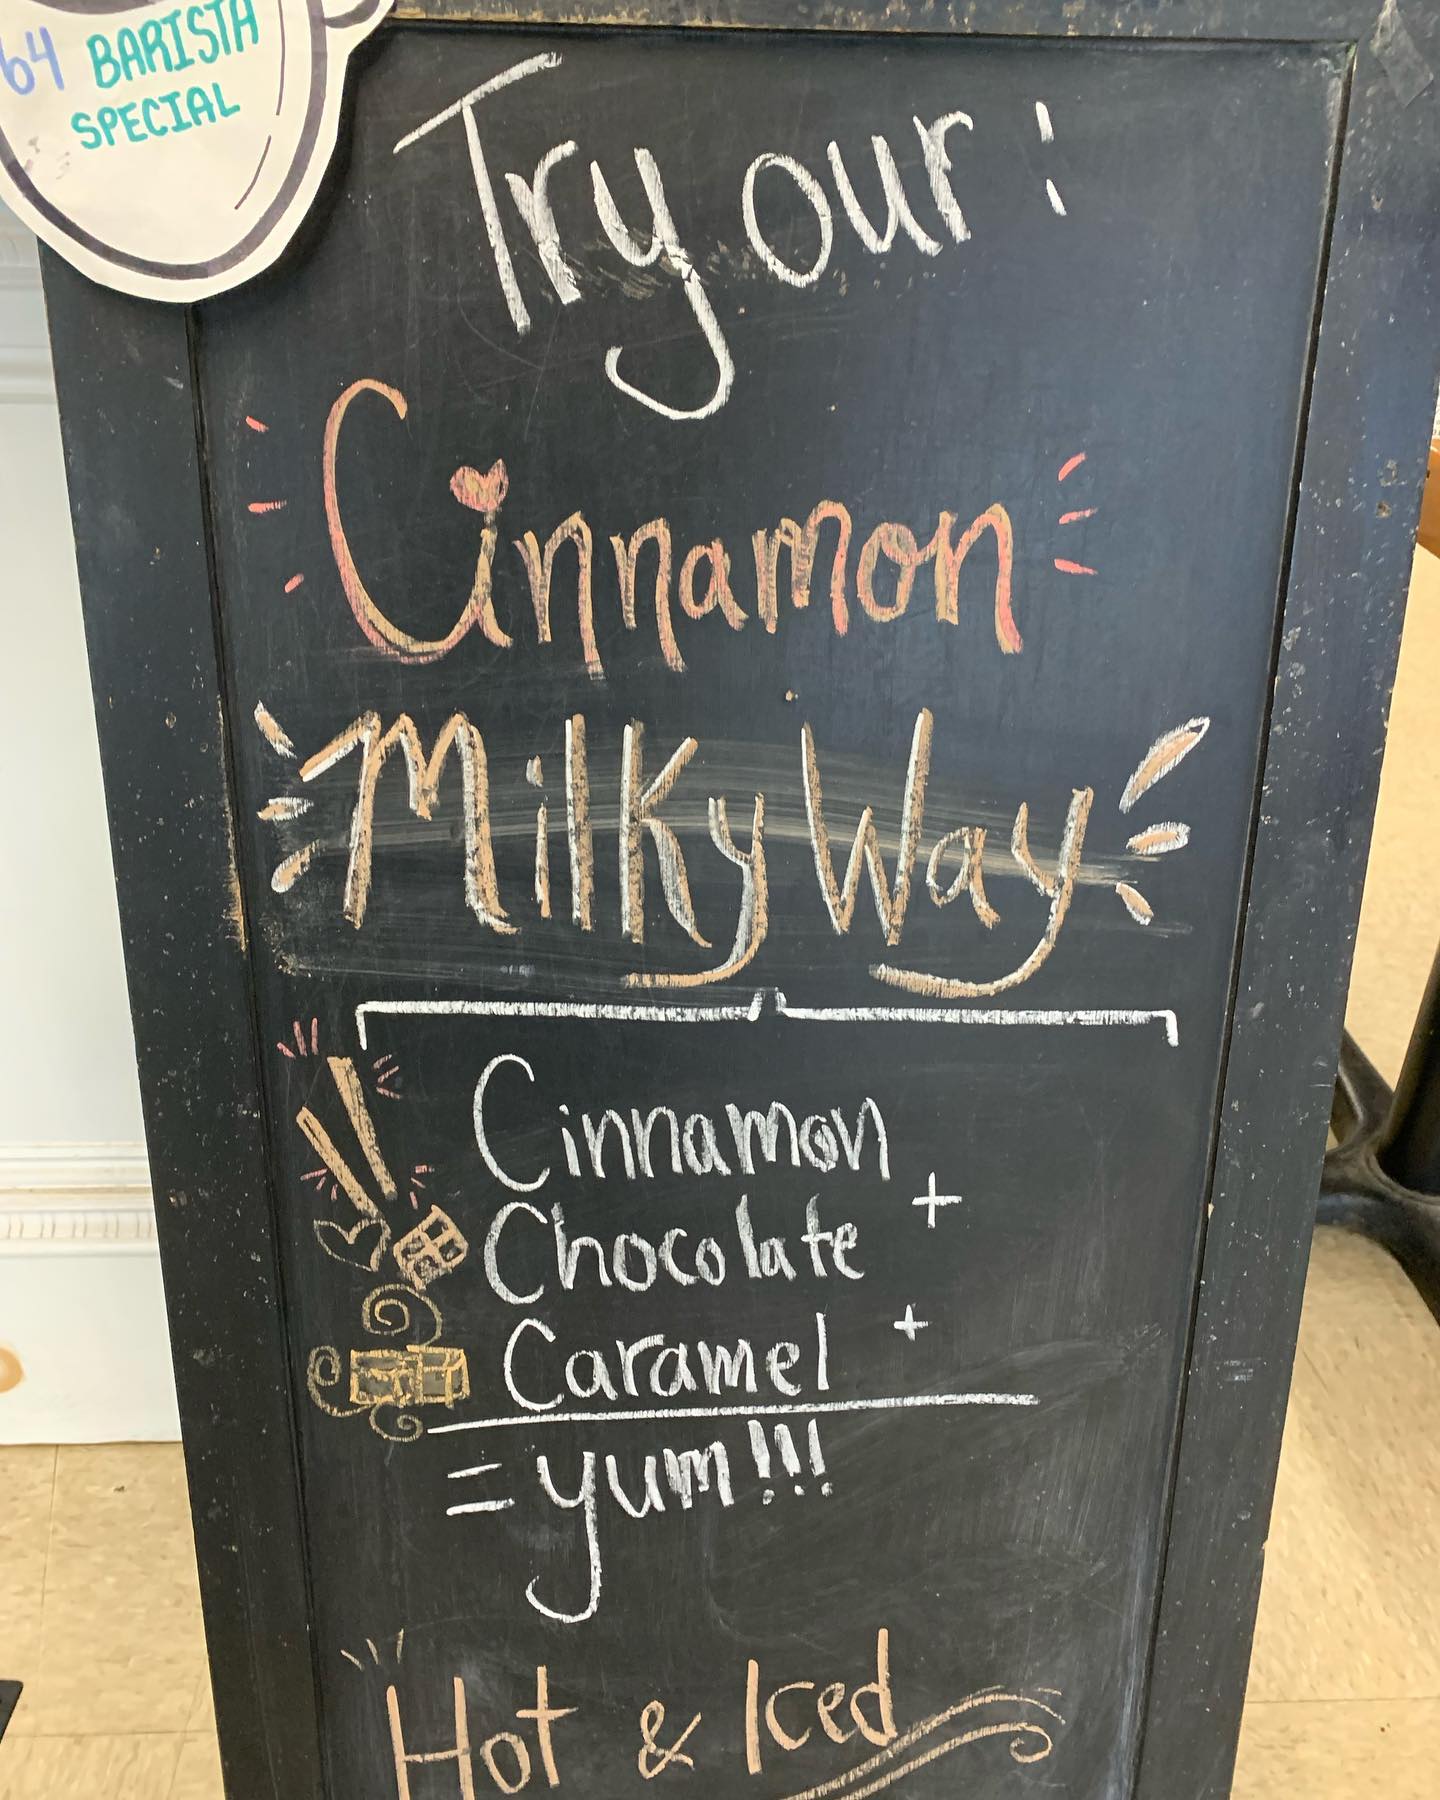 64 BARISTA
SPECIAL
Try our:
Cinnamon
Milky Way
Cinnamon
+
Chocolate
+
Caramel
= yum!!!
Hot & Iced